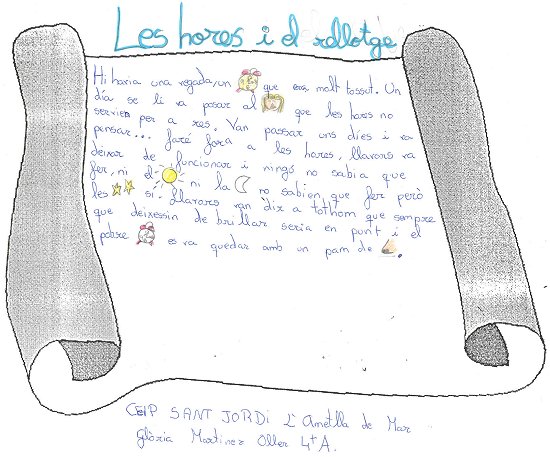 Les hores i el rellotge
Hi havia una vegada, un que era molt tossut. Un
día se li va pasar al que les hores no
servien per a res. Van passar uns díes i va
pensar... faré fora a les hores, llavors va
deixar de funcionar i ningú no sabia que
fer, ni el ni la no sabien que fer però
les si. llavors van dix a tothom que sempre
que deixessin de brillar seria en punt i el
pobre es va quedar amb un pam de
CEIP SANT JORDI L'Ametlla de Mar
Glòria Martinez Oller 4t A.